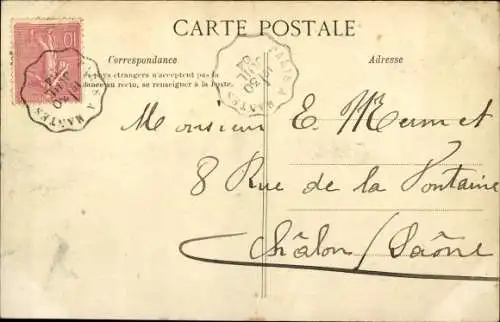 CARTE POSTALE
Correspondance
Adresse
pays étrangers n'acceptent pas la
au recto, se renseigner à la Poste.)
10
PARIS A MANTES
PARIS A MANTES
Monsieur E. Mermet
8 Rue de la Fontaine
Châlon / Saône